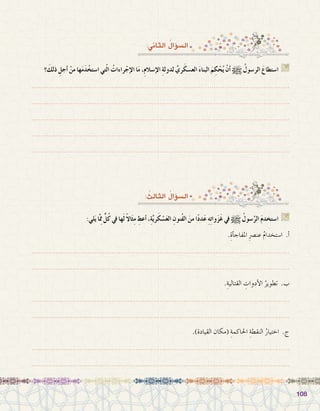 السؤال الثاني
استطاعَ الرسولُ ﷺ أنْ يُحْكِمَ البناءَ العسكريَّ لدولةِ الإسلامِ، ما الإجراءاتُ التي استخْدَمَها مِنْ أجلِ ذلكَ؟
السؤال الثالث
استخدمَ الرَّسولُ ﷺ في غَزَواتِهِ عَدَدًا منَ الفُنونِ العَسْكَريَّةِ، أعطِ مِثالًا لَها في كُلٍّ ممَّا يلَي:
أ. استخدامُ عنصرِ المفاجأةِ.
ب. تطويرُ الأدواتِ القتاليةِ.
ج. اختيارُ النقطةِ الحاكمةِ (مكان القيادة).
108